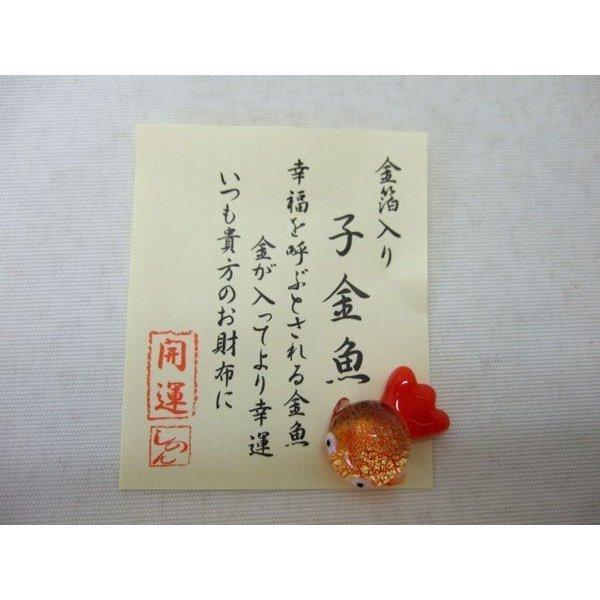 金箔入り
子金魚
幸福を呼ぶとされる金魚
金が入ってより幸運
いつも貴方のお財布に
開運
しのん